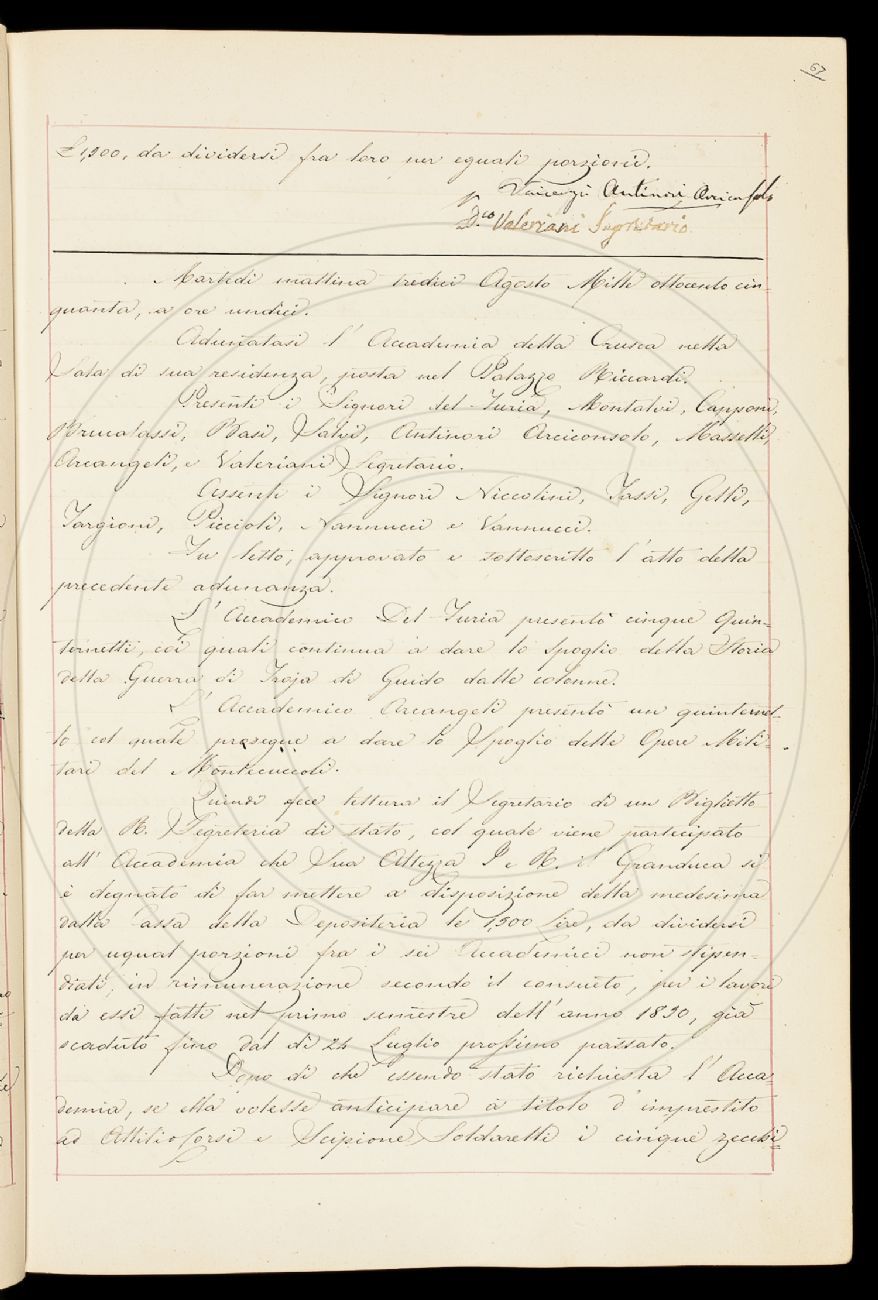 67
£ 1,500, da dividersi fra loro per eguali porzioni.
Vincenzio Antinori Arciconsolo
D.co Valeriani Segretario
Martedì mattina tredici Agosto Mille ottocento cin-
quanta, a ore undici.
Adunatasi l' Accademia della Crusca nella
Sala di sua residenza, posta nel Palazzo Riccardi.
Presenti i Signori del-Furia, Montalvi, Capponi,
Brucalassi, Basi, Salvi, Antinori Arciconsolo, Masselli,
Arcangeli, e Valeriani Segretario.
Assenti i Signori Niccolini, Tassi, Gelli,
Targioni, Piccioli, Nannucci e Vannucci.
Fu letto, approvato e sottoscritto l' atto della
precedente adunanza.
L' Accademico Del-Furia presentò cinque Quin-
ternetti, coi quali continua a dare lo spoglio della Storia
della Guerra di Troja di Guido dalle colonne.
L' Accademico Arcangeli presentò un quinternet-
to col quale prosegue a dare lo Spoglio delle Opere Mili-
tari del Montecuccoli.
Quindi fece lettura il Segretario di un Biglietto
della R. Segreteria di stato, col quale viene partecipato
all' Accademia che Sua Altezza I e R. il Granduca si
è degnato di far mettere a disposizione della medesima
dalla Cassa della Depositeria le 1,500 Lire, da dividersi
per ugual porzioni fra i sei Accademici non stipen-
diati, in rimunerazione secondo il consueto, per i lavori
da essi fatti nel primo semestre dell' anno 1850, già
scaduto fino dal dì 24 Luglio prossimo passato.
Dopo di che essendo stato richiesta l' Acca-
demia, se ella volesse anticipare a titolo d' imprestito
ad Attilio Corsi e Scipione Soldarelli i cinque zecchi-